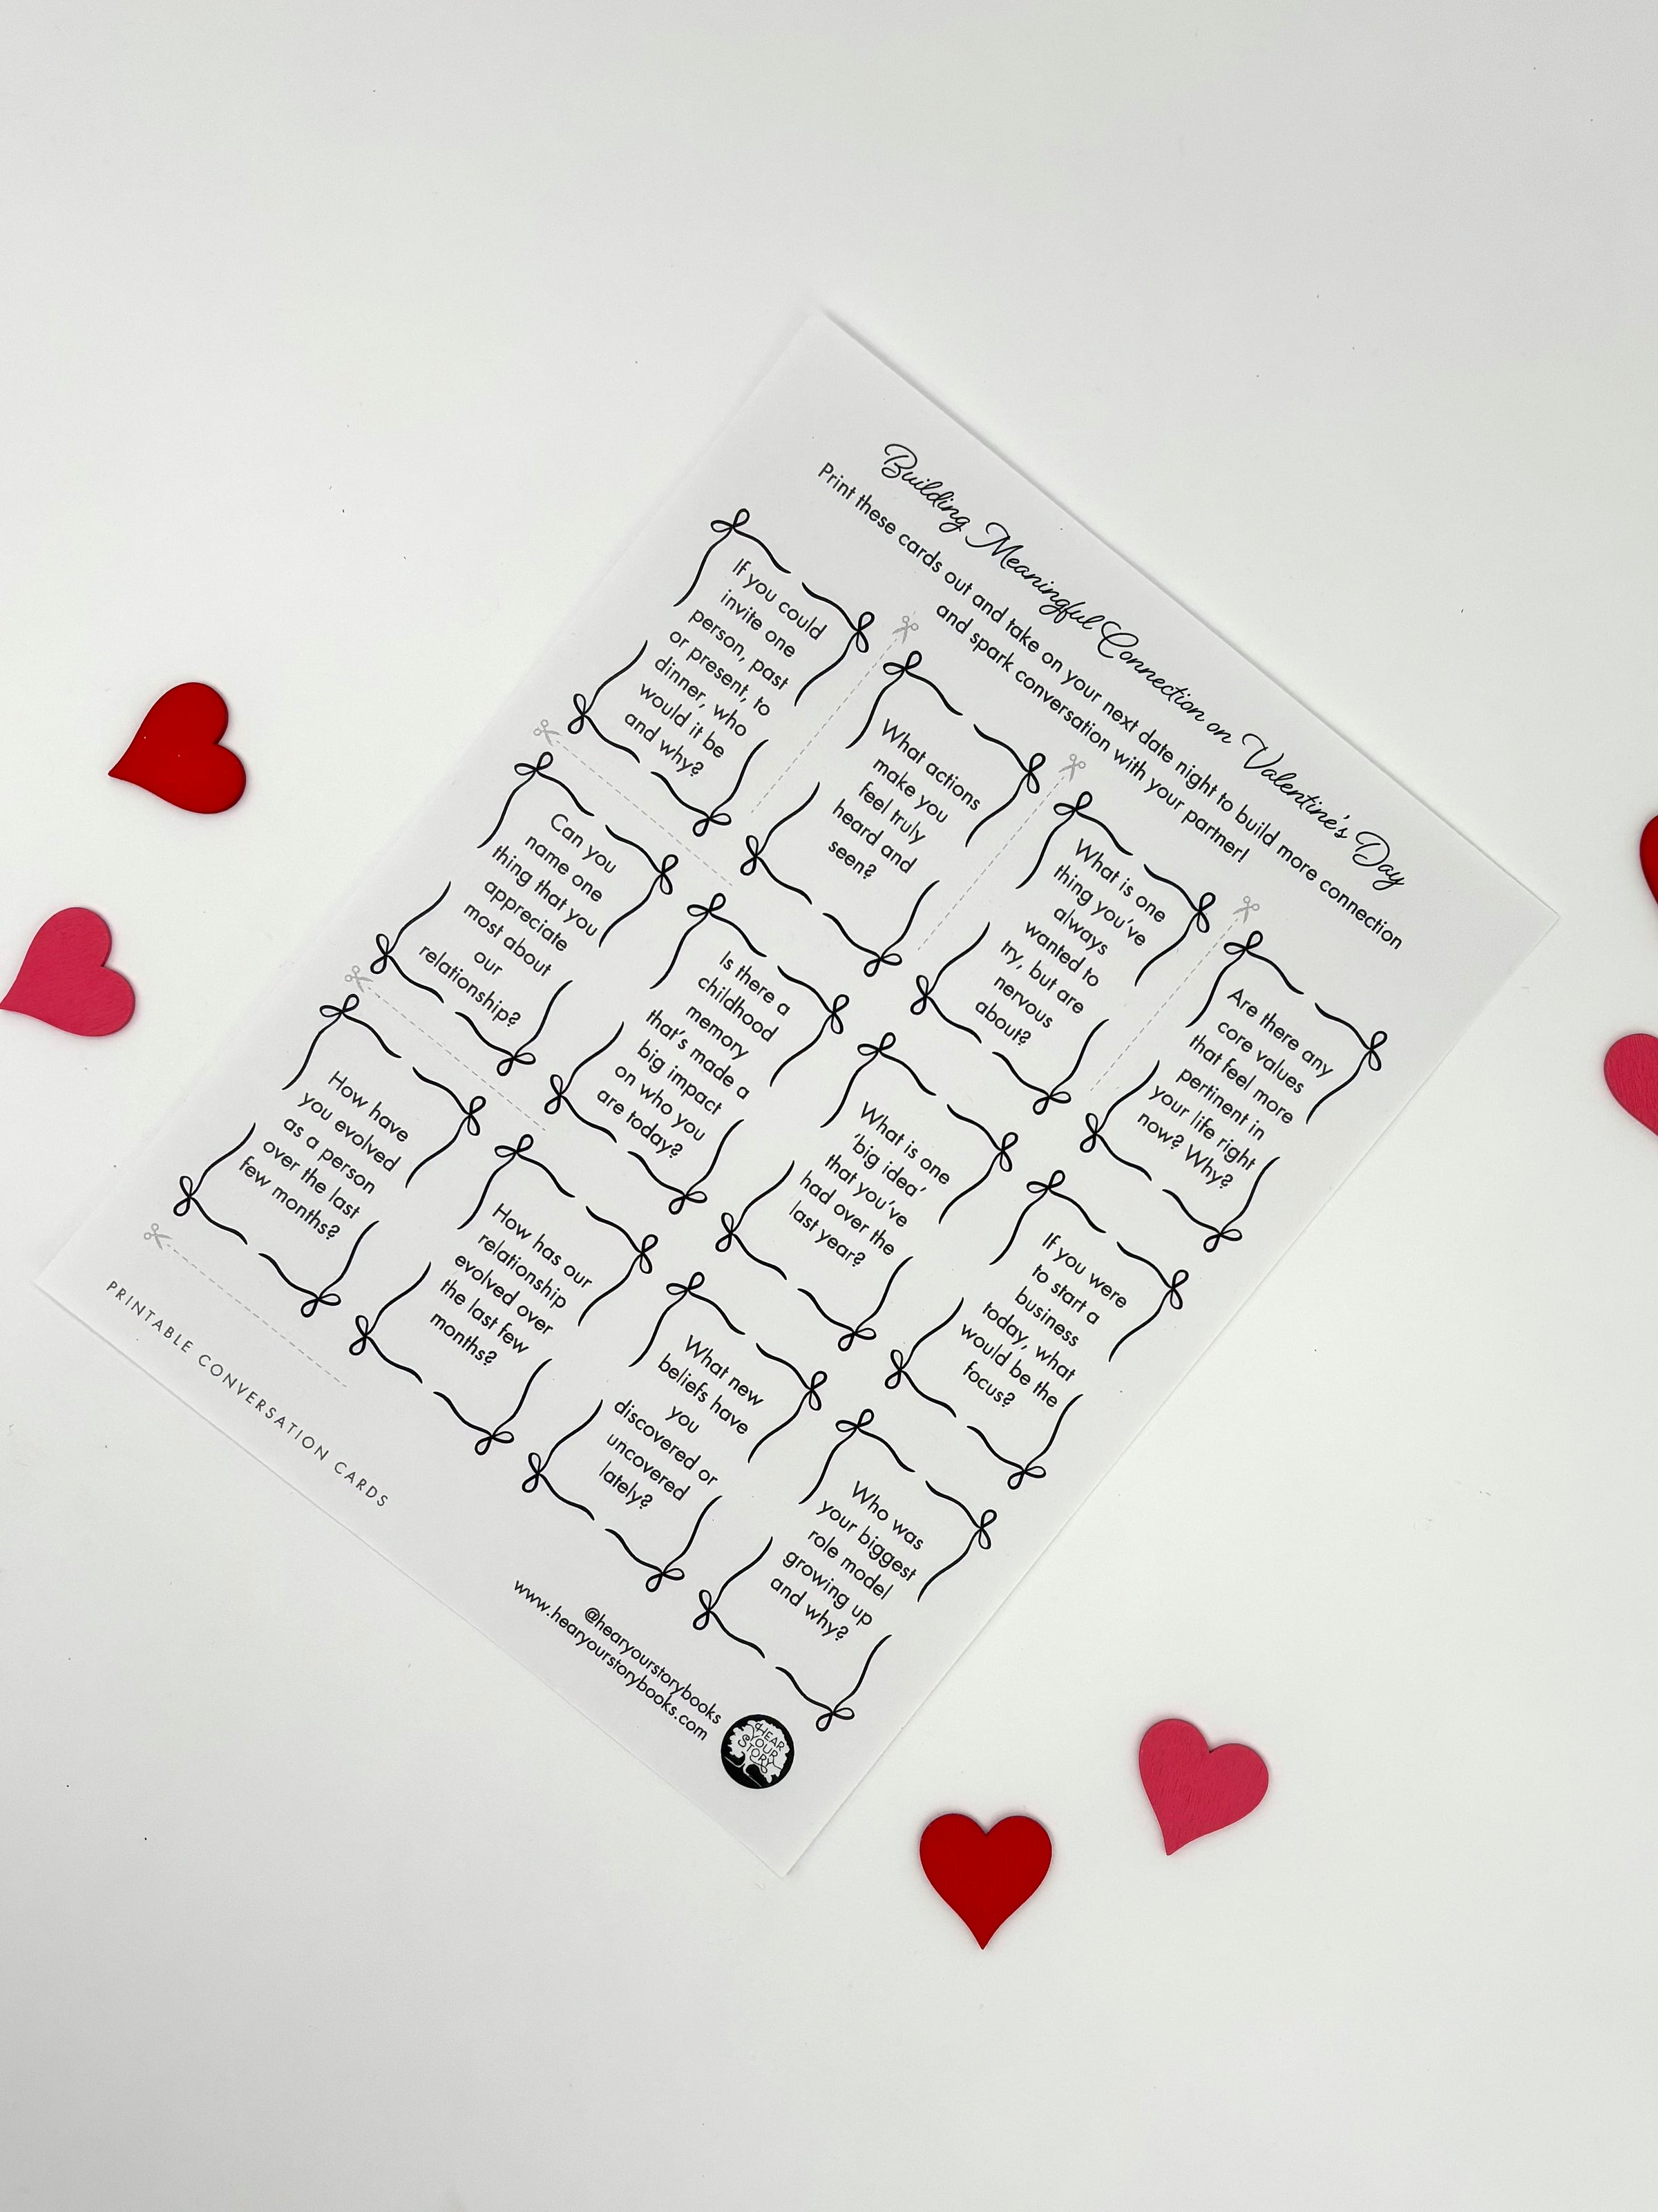 Building Meaningful Connection on Valentine's Day
Print these cards out and take on your next date night to build more connection
and spark conversation with your partner!
If you could
invite one
person, past
or present, to
dinner, who
would it be
and why?
What actions
make you
feel truly
heard and
seen?
What is one
thing you've
always
wanted to
try, but are
nervous
about?
Are there any
core values
that feel more
pertinent in
your life right
now? Why?
Can you
name one
thing that you
appreciate
most about
our
relationship?
Is there a
childhood
memory
that's made a
big impact
on who you
are today?
What is one
'big idea'
that you've
had over the
last year?
If you were
to start a
business
today, what
would be the
focus?
How have
you evolved
as a person
over the last
few months?
How has our
relationship
evolved over
the last few
months?
What new
beliefs have
you
discovered or
uncovered
lately?
Who was
your biggest
role model
growing up
and why?
PRINTABLE CONVERSATION CARDS
@hearyourstorybooks
www.hearyourstorybooks.com
HEAR
YOUR
STORY